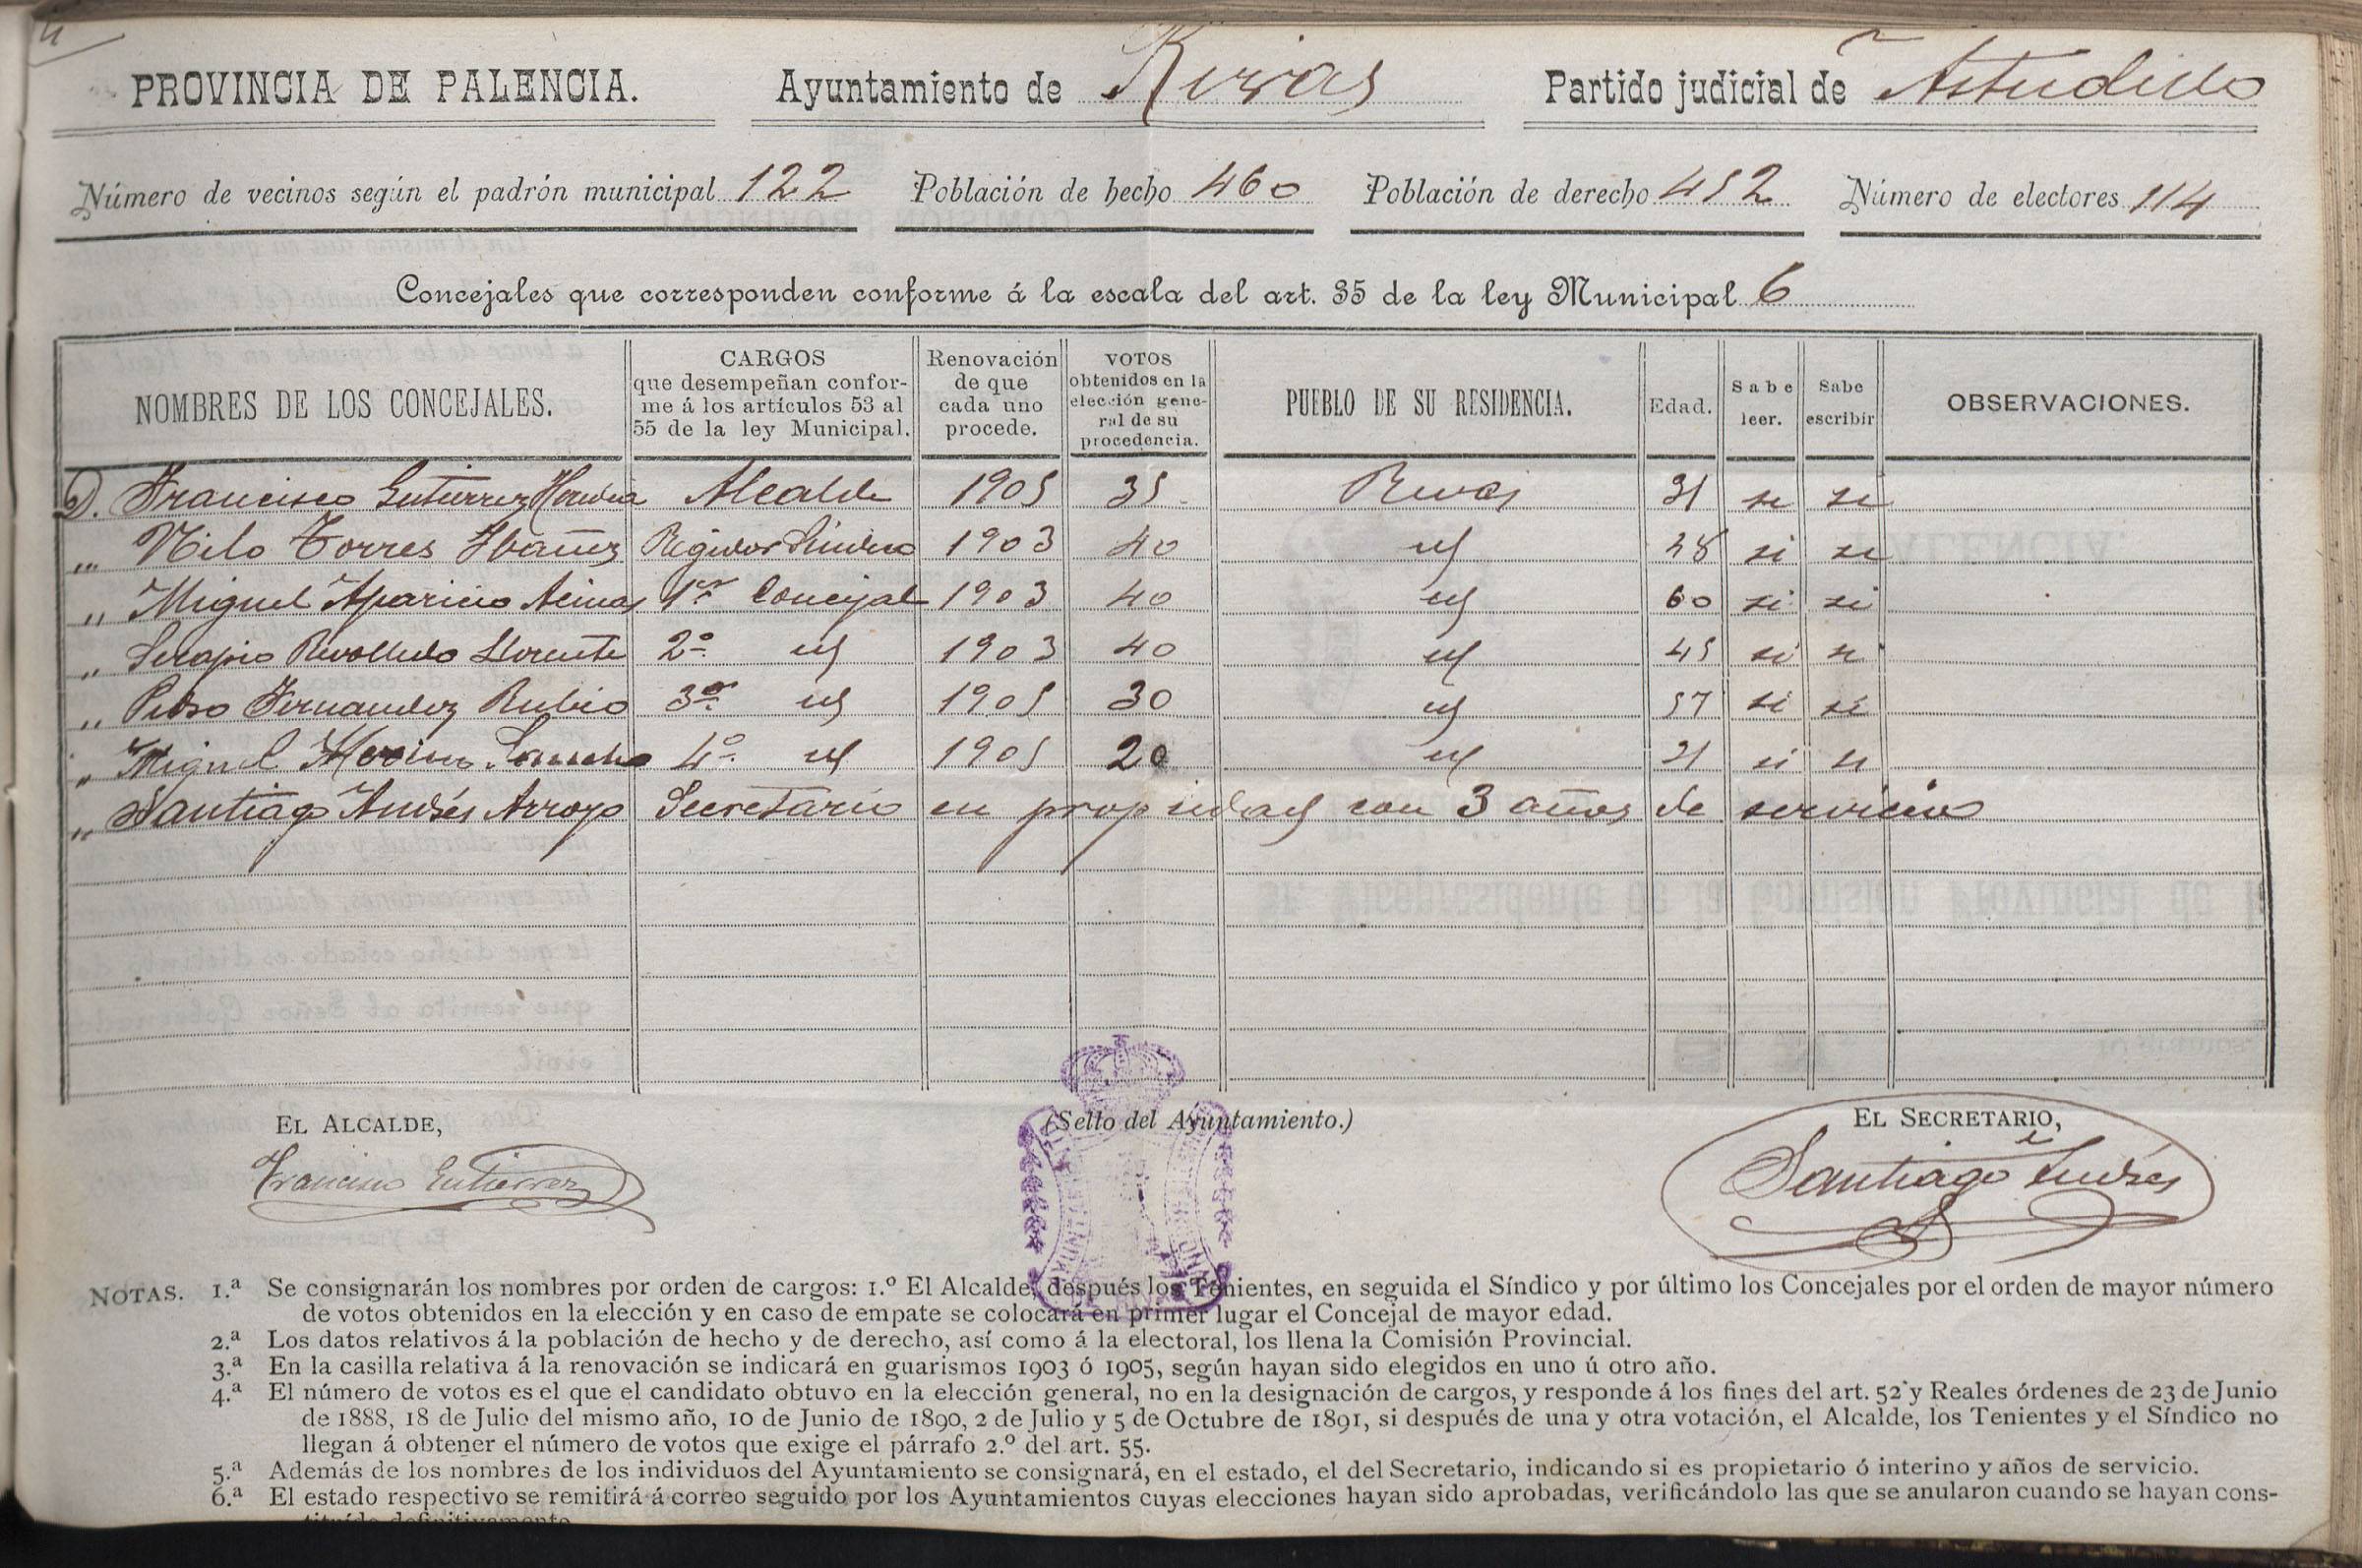 PROVINCIA DE PALENCIA. Ayuntamiento de Rivas Partido judicial de Astudillo
Número de vecinos según el padrón municipal 122 Población de hecho 460 Población de derecho 452 Número de electores 114
Concejales que corresponden conforme á la escala del art. 35 de la ley Municipal 6
NOMBRES DE LOS CONCEJALES. CARGOS que desempeñan conforme á los artículos 53 al 55 de la ley Municipal. Renovación de que cada uno procede. VOTOS obtenidos en la elección general de su procedencia. PUEBLO DE SU RESIDENCIA. Edad. Sabe leer. Sabe escribir OBSERVACIONES.
D. Francisco Gutierrez Alcalde 1905 35 Rivas 31 si si
„ Nilo Torres Ibañez Regidor Sindico 1903 40 id 28 si si
„ Miguel Aparicio 1er Concejal 1903 40 id 60 si si
„ Serapio Revolledo Llorente 2º id 1903 40 id 45 si si
„ Pedro Fernandez Rubio 3er id 1905 30 id 57 si si
„ Miguel 4º id 1905 20 id si si
„ Santiago Andrés Arroyo Secretario en propiedad con 3 años de servicio
EL ALCALDE, (Sello del Ayuntamiento.) EL SECRETARIO,
Francisco Gutierrez Santiago Andrés
NOTAS. 1.ª Se consignarán los nombres por orden de cargos: 1.º El Alcalde, después los Tenientes, en seguida el Síndico y por último los Concejales por el orden de mayor número
de votos obtenidos en la elección y en caso de empate se colocará en primer lugar el Concejal de mayor edad.
2.ª Los datos relativos á la población de hecho y de derecho, así como á la electoral, los llena la Comisión Provincial.
3.ª En la casilla relativa á la renovación se indicará en guarismos 1903 ó 1905, según hayan sido elegidos en uno ú otro año.
4.ª El número de votos es el que el candidato obtuvo en la elección general, no en la designación de cargos, y responde á los fines del art. 52 y Reales órdenes de 23 de Junio
de 1888, 18 de Julio del mismo año, 10 de Junio de 1890, 2 de Julio y 5 de Octubre de 1891, si después de una y otra votación, el Alcalde, los Tenientes y el Síndico no
llegan á obtener el número de votos que exige el párrafo 2.º del art. 55.
5.ª Además de los nombres de los individuos del Ayuntamiento se consignará, en el estado, el del Secretario, indicando si es propietario ó interino y años de servicio.
6.ª El estado respectivo se remitirá á correo seguido por los Ayuntamientos cuyas elecciones hayan sido aprobadas, verificándolo las que se anularon cuando se hayan cons-
tituído definitivamente